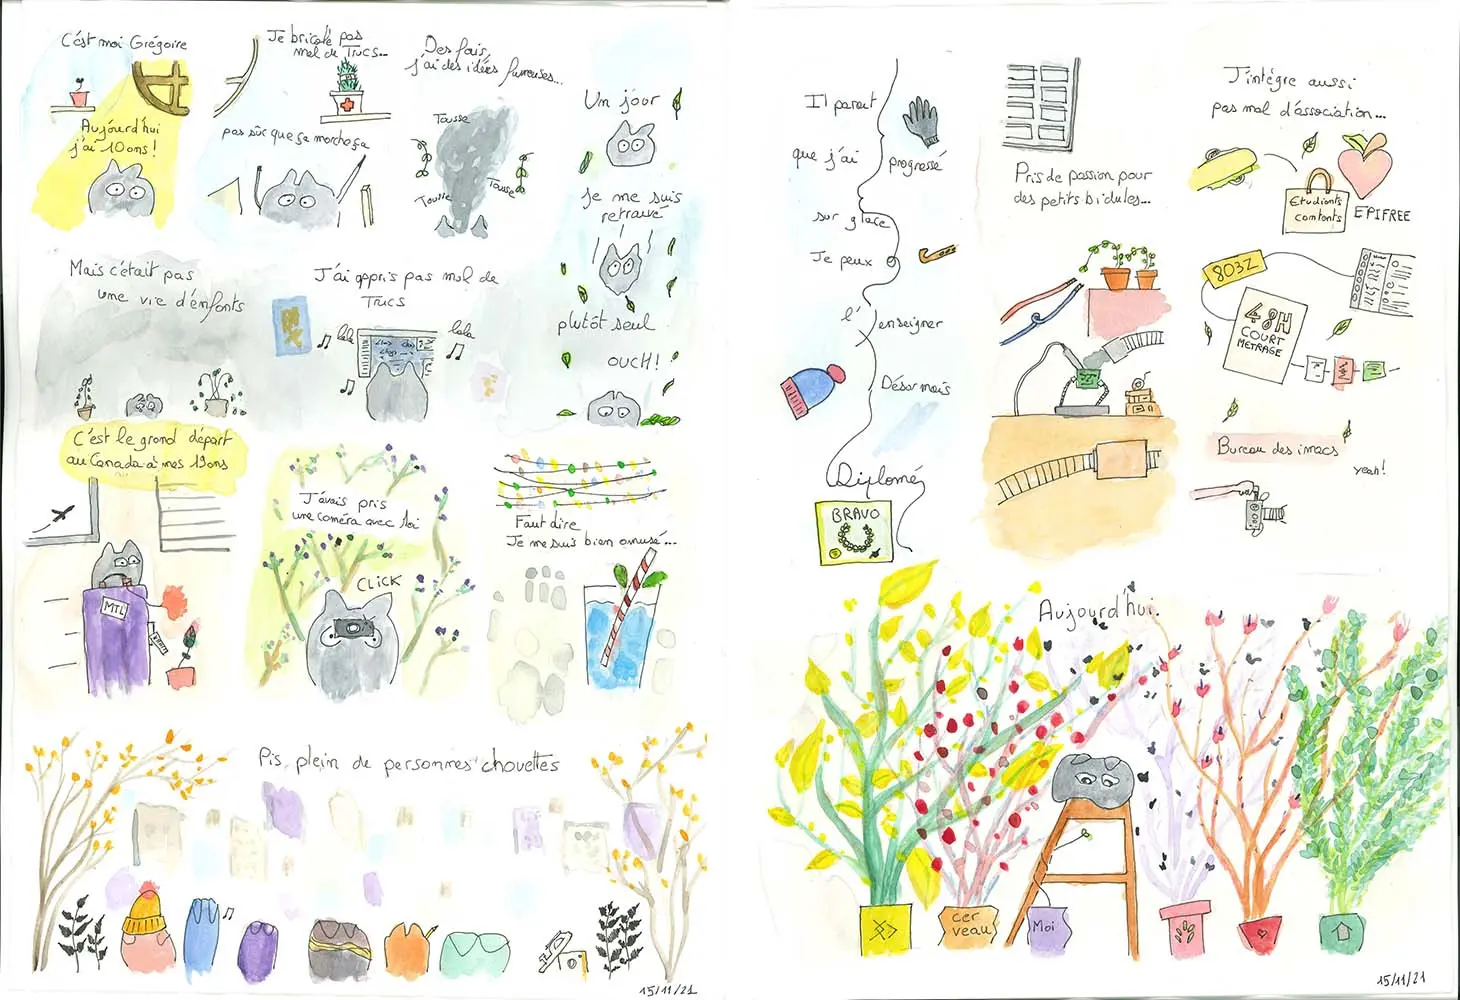 C'est moi Grégoire
Aujourd'hui
j'ai 10 ans!
Je bricole pas
mal de Trucs...
pas sûr que ça marche ça
Des fois,
j'ai des idées fumeuses...
Tousse
Tousse
Tousse
Un jour
Je me suis
retrouvé
plutôt seul
OUCH!
Mais c'était pas
une vie d'enfants
J'ai appris pas mal de
Trucs
lala
lala
C'est le grand départ
au Canada à mes 19 ans
MTL
J'avais pris
une caméra avec moi
CLICK
Faut dire
Je me suis bien amusé...
Pis, plein de personnes chouettes
15/11/21
Il parait
que j'ai
progressé
sur glace
Je peux
l'enseigner
Désormais
Diplomé
BRAVO
Pris de passion pour
des petits bidules...
J'intègre aussi
pas mal d'association...
Etudiants
contents
EPIFREE
803Z
48H
COURT
METRAGE
Bureau des imacs
yeah!
Aujourd'hui.
cer
veau
Moi
15/11/21